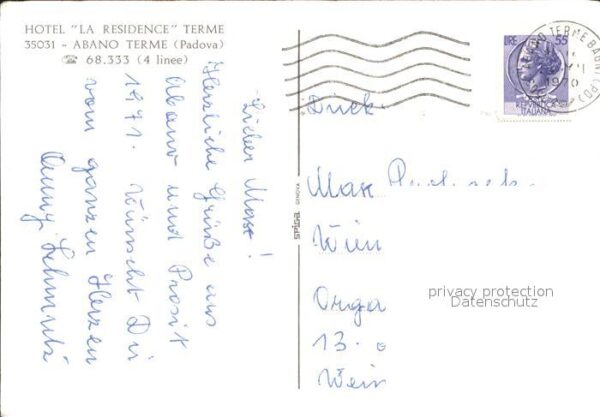 HOTEL "LA RESIDENCE" TERME
35031 - ABANO TERME (Padova)
☎ 68.333 (4 linee)
Lieber Max!
Herzliche Grüße aus
Abano und Prosit
1971. Wünscht Dir
vom ganzen Herzen
spiga GENOVA
LIRE 55
ABANO TERME BAGNI (PD)
1970
ITALIANA
Max
Wien
privacy protection
Datenschutz
13.
Wein